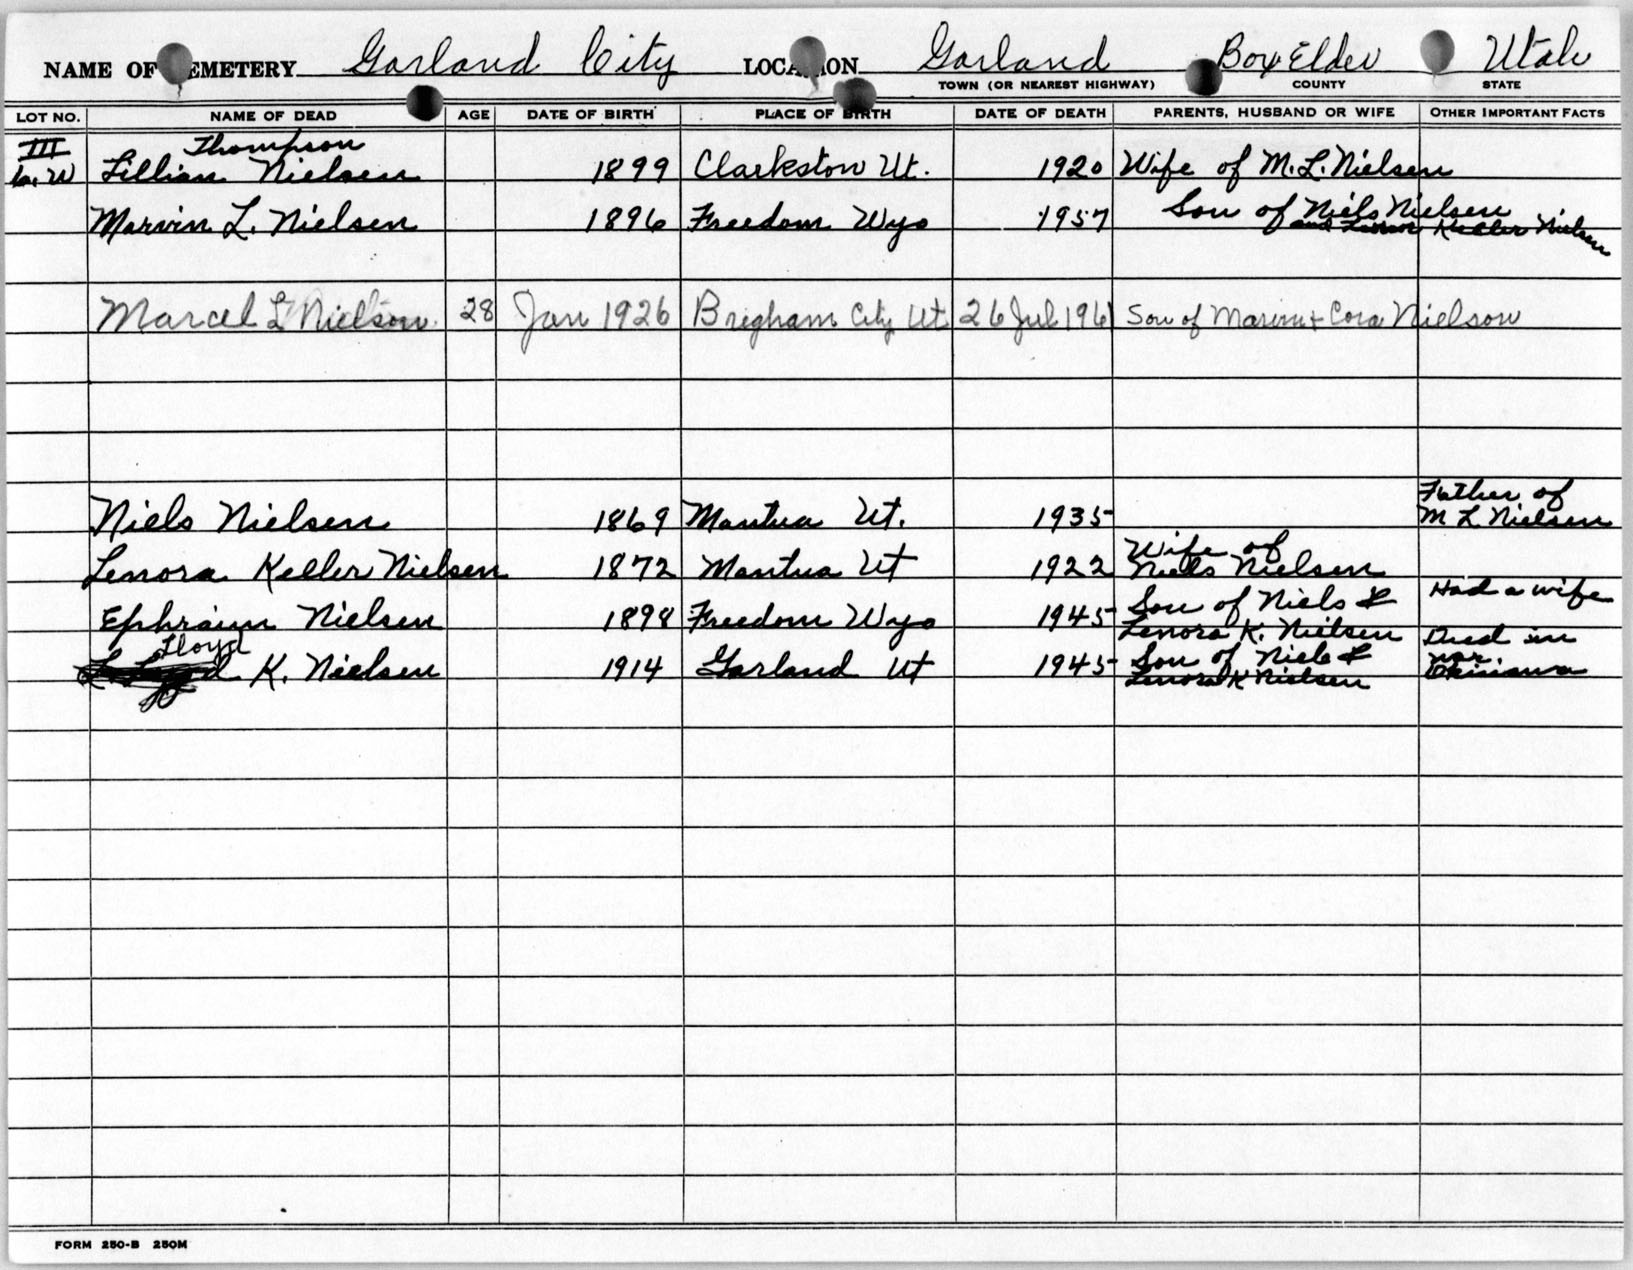 NAME OF CEMETERY Garland City LOCATION Garland Box Elder Utah
TOWN (OR NEAREST HIGHWAY) COUNTY STATE
LOT NO. NAME OF DEAD AGE DATE OF BIRTH PLACE OF BIRTH DATE OF DEATH PARENTS, HUSBAND OR WIFE OTHER IMPORTANT FACTS
III Thompson
W Lillian Nielsen 1899 Clarkston Ut. 1920 Wife of M.L. Nielsen
Marvin L. Nielsen 1896 Freedom Wyo 1957 Son of Niels Nielsen
and Lenora Keller Nielsen
Marcel L Nielson 28 Jan 1926 Brigham City Ut 26 Jul 1961 Son of Marvin + Cora Nielson
Father of
Niels Nielsen 1869 Mantua Ut. 1935 M L Nielsen
Wife of
Lenora Keller Nielsen 1872 Mantua Ut 1922 Niels Nielsen
Son of Niels & Had a wife
Ephraim Nielsen 1898 Freedom Wyo 1945 Lenora K. Nielsen
Lloyd Son of Niels & Died in war
K. Nielsen 1914 Garland Ut 1945 Lenora K Nielsen Okinawa
FORM 250-B 250M